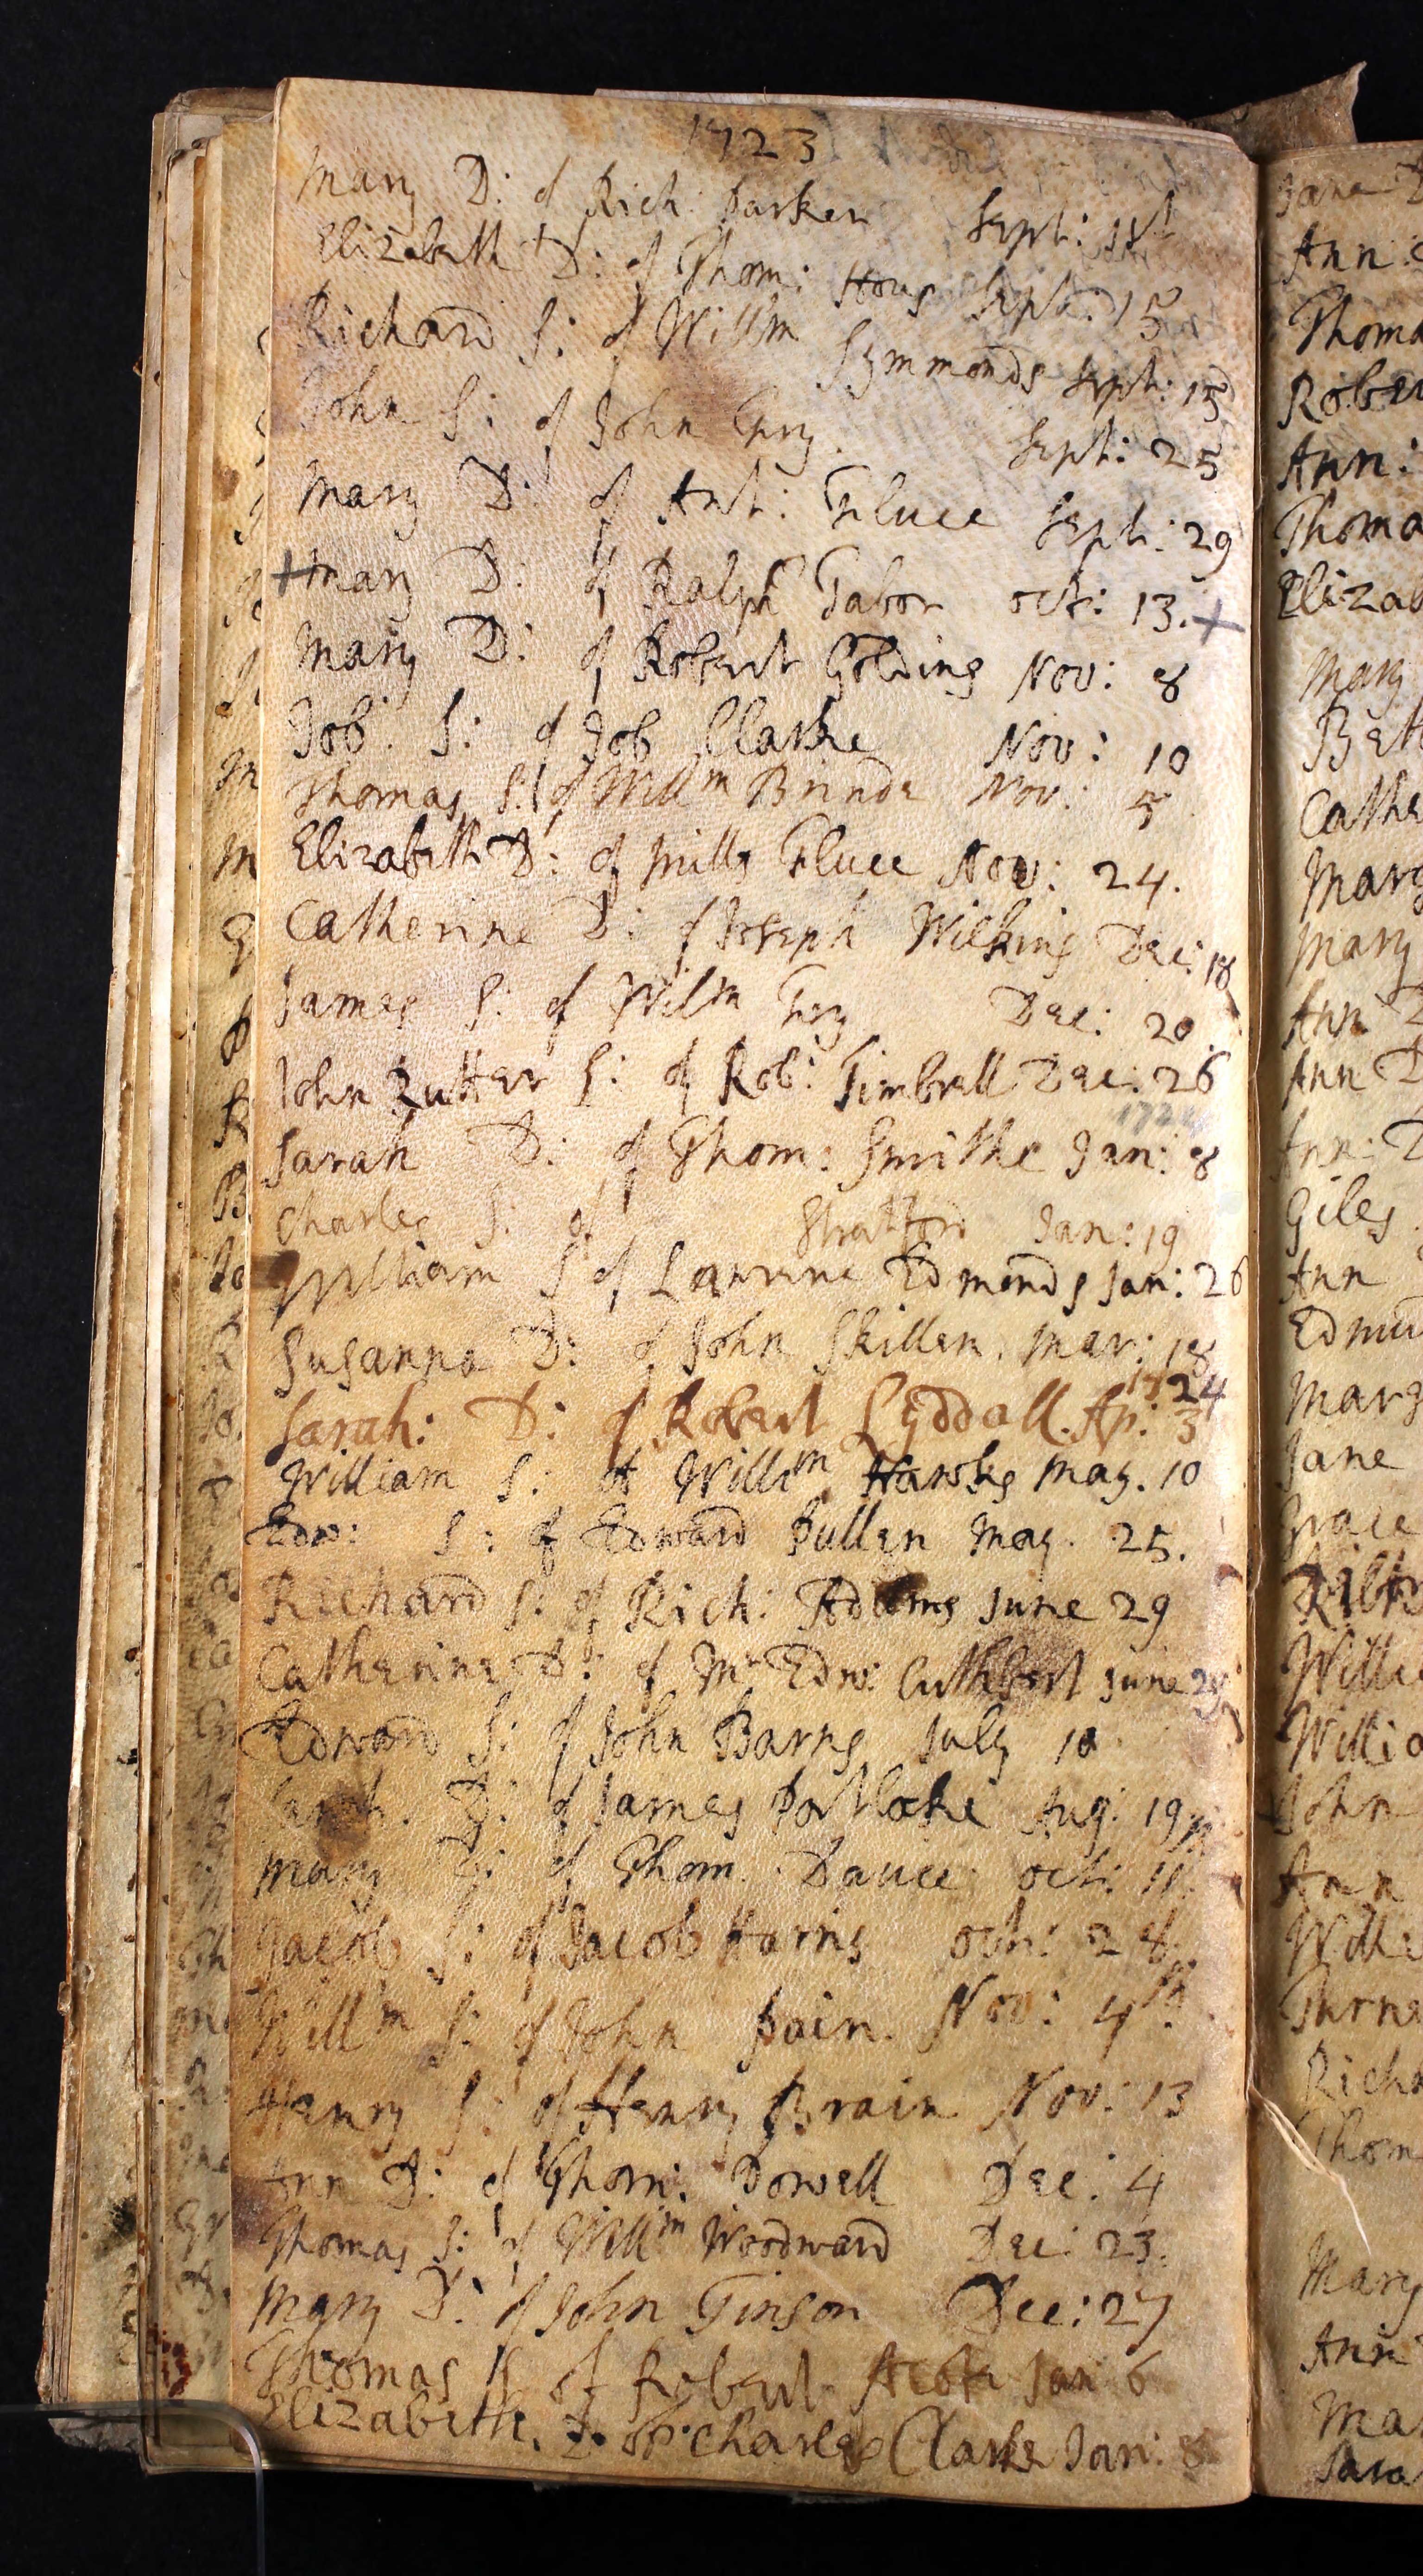 1723
Mary D: of Rich: Parker Sept: 11th
Elizabeth D: of Thom: Hows Sept: 15
Richard S: of Willm Symmonds Sept: 15
John S: of John Gery. Sept: 25
Mary D: of Ant: Fluce Sept: 29
+ Mary D: of Ralph Tabor Oct: 13. +
Mary D: of Robert Golding Nov: 8
Job. S: of Job Clarke Nov: 10
Thomas S: of Willm Brinde Nov: 5
Elizabeth D: of Mills Fluce Nov: 24.
Catherine D: of Joseph Wilkins Dec: 18
James S: of Wilm Dec: 20
John Rutter S: of Rob: Timbrell Dec: 26
1724
Sarah D: of Thom: Smithe Jan: 8
Charles S: of Stratford Jan: 19
William S of Edmonds Jan: 26
Susanna D: of John Skillen. Mar: 18
1724
Sarah: D: of Robert Lyddall. Ap: 3
William S: of Willm Hawks May. 10
Edw: S: of Edward Pullen May. 25.
Richard S: of Rich: Adams June 29
Catherine D: of Mr Edw: Cuthbert June
Edward S: of John Barns July 10
Sarah. D: of James Portlocke Aug: 19
Mary D: of Thom. Dauce Oct: 11
Jacob S: of Jacob Harris Oct: 28
Willm S: of John Pain. Nov: 4th
Henry S: of Henry Brain Nov: 13
Ann D: of Thom: Dowell Dec: 4
Thomas S: of Willm Woodward Dec: 23.
Mary D: of John Ginson Dec: 27
Thomas S of Robert Jan 6
Elizabeth. D. of Charles Clarke Jan: 8
Jane
Ann
Thoma
Rober
Ann:
Thoma
Elizab
Mary
Bett
Cathe
Marg
Mary
Ann D
Ann D
Ann: D
Giles
Ann
Edmu
Mary
Jane
Grace
Willi
Willia
John
Ann
Richa
Thom
Mary
Ann
Ma
Sara